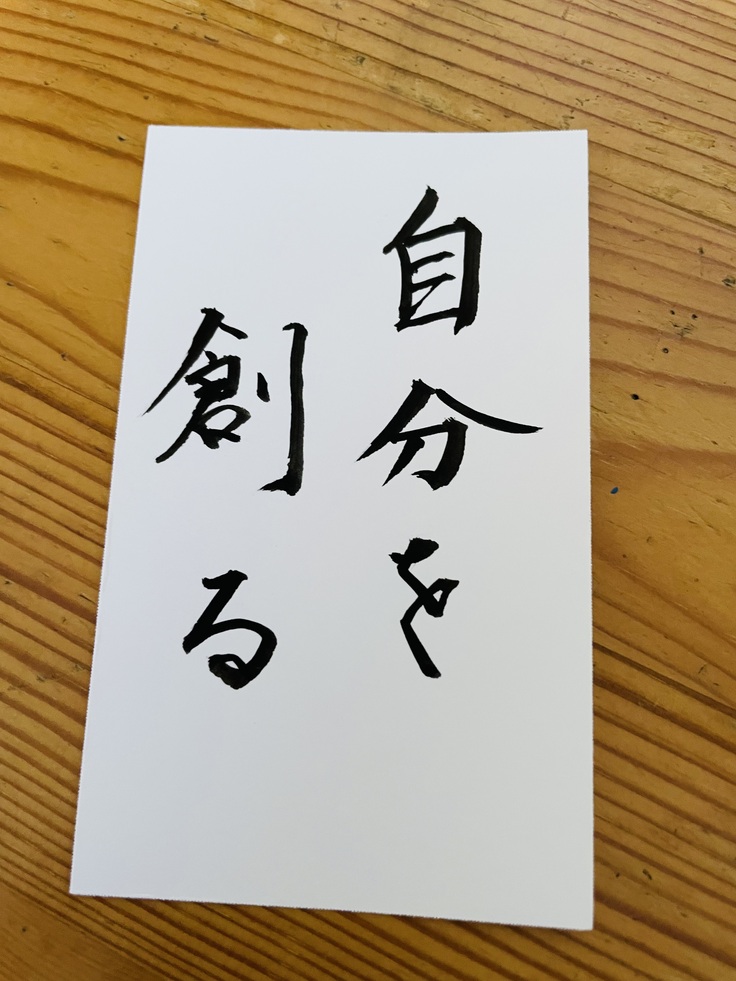 自分を
創る